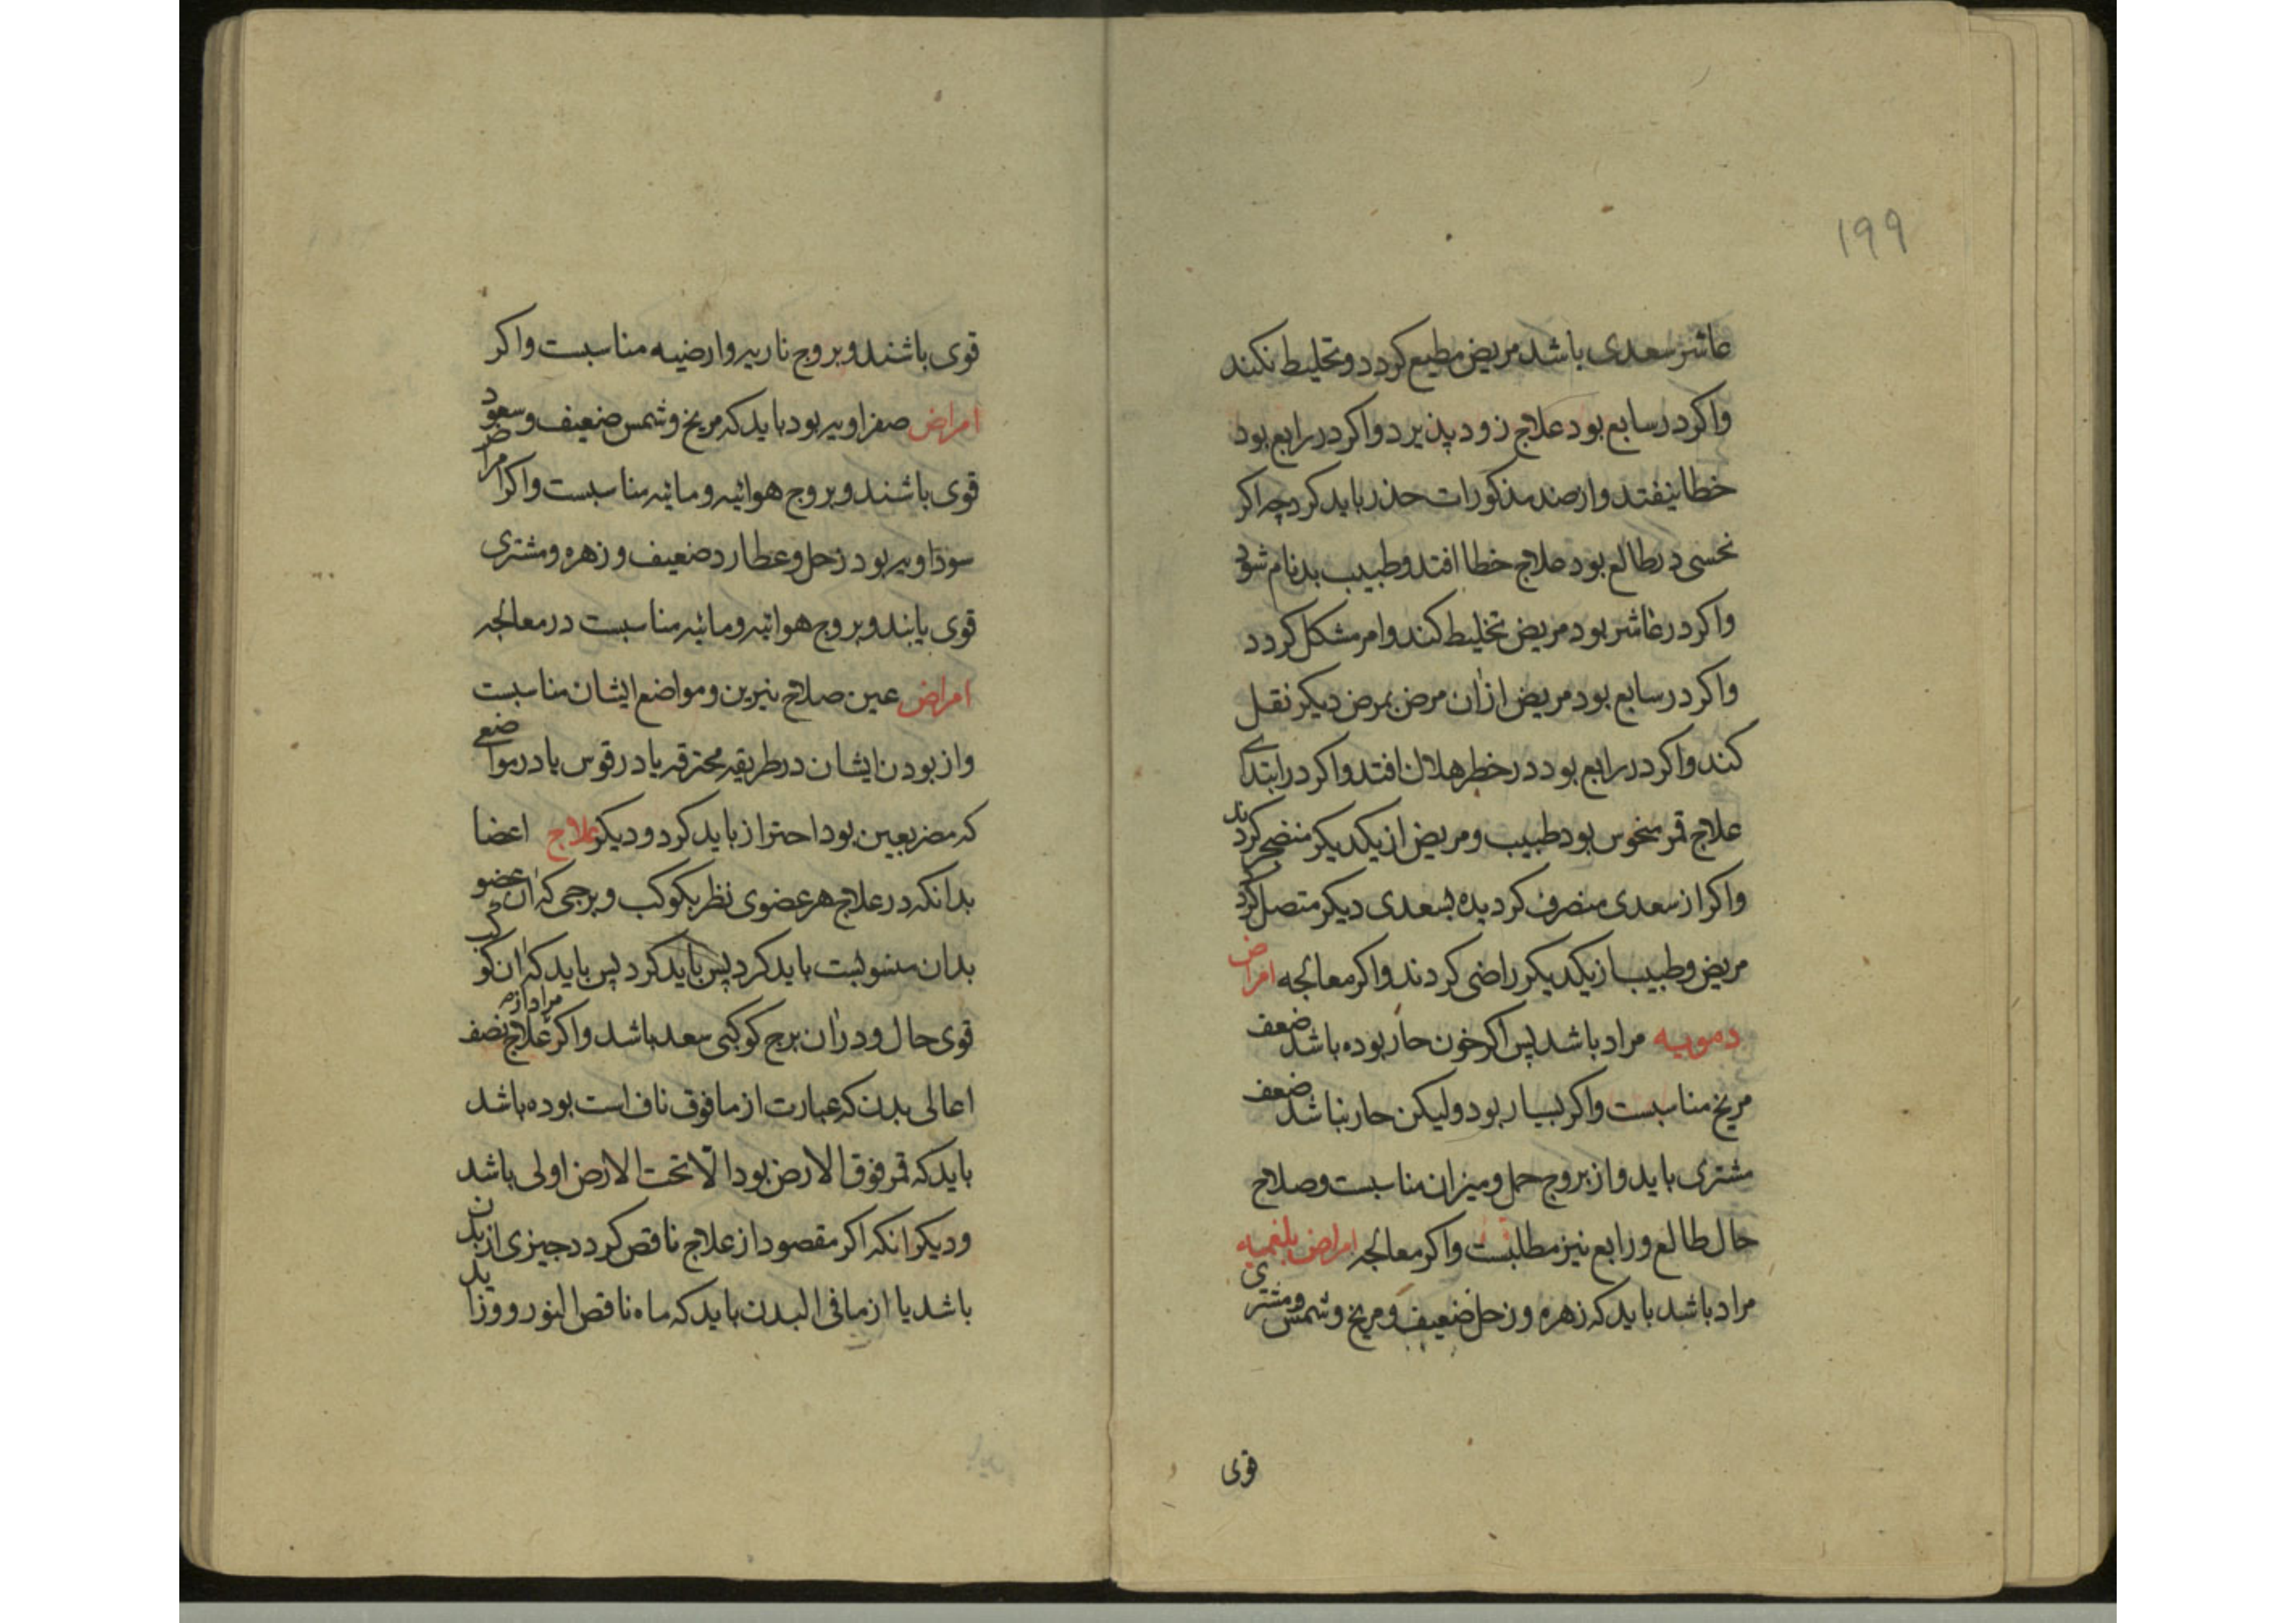 ۱۹۹
عاشر سعدی باشد مریض مطیع کردد و تخلیط نکند
واکر در سابع بود علاج زود پذیرد واکر در رابع بود
خطا نیفتد و از ضد مذکورات حذر باید کرد چه اکر
نحسی در طالع بود علاج خطا افتد و طبیب بدنام شود
واکر در عاشر بود مریض تخلیط کند و امر مشکل کردد
واکر در سابع بود مریض ازان مرض بمرض دیکر نقل
کند واکر در رابع بود در خطر هلاک افتد واکر در ابتدای
علاج قمر منحوس بود طبیب و مریض از یکدیکر منضجر کردند
واکر از سعدی منصرف کردیده بسعدی دیکر متصل کردد
مریض و طبیب از یکدیکر راضی کردند واکر معالجه امراض
دمویه مراد باشد پس اکر خون حار بوده باشد ضعف
مریخ مناسبست واکر بسیار بود ولیکن حار نباشد ضعف
مشتری باید و از بروج حمل و میزان مناسبست و صلاح
حال طالع و رابع نیز مطلبست واکر معالجه امراض بلغمیه
مراد باشد باید که زهره و زحل ضعیف و مریخ و شمس و مشتری
قوی
قوی باشند و بروج ناریه و ارضیه مناسبست واکر
امراض صفراویه بود باید که مریخ و شمس ضعیف و سعود
قوی باشند و بروج هوائیه و مائیه مناسبست واکر امراض
سوداویه بود زحل و عطارد ضعیف و زهره و مشتری
قوی یابند و بروج هوائیه و مائیه مناسبست در معالجه
امراض عین صلاح نیرین و مواضع ایشان مناسبست
و از بودن ایشان در طریقه محترقه یا در قوس یا در مواضعی
که مضر بعین بود احتراز باید کرد و دیکر علاج اعضا
بدانکه در علاج هر عضوی نظر بکوکب و برجی که ان عضو
بدان منسوبست باید کرد پس باید کرد پس باید که ان کوکب
قوی حال و دران برج کوکبی سعد باشد واکر مراد از علاج نصف
اعالی بدن که عبارت از مافوق ناف است بوده باشد
باید که قمر فوق الارض بود الا تحت الارض اولی باشد
و دیکر انکه اکر مقصود از علاج ناقص کردد چیزی از بدن
باشد یا از مافی البدن باید که ماه ناقص النور و زاید